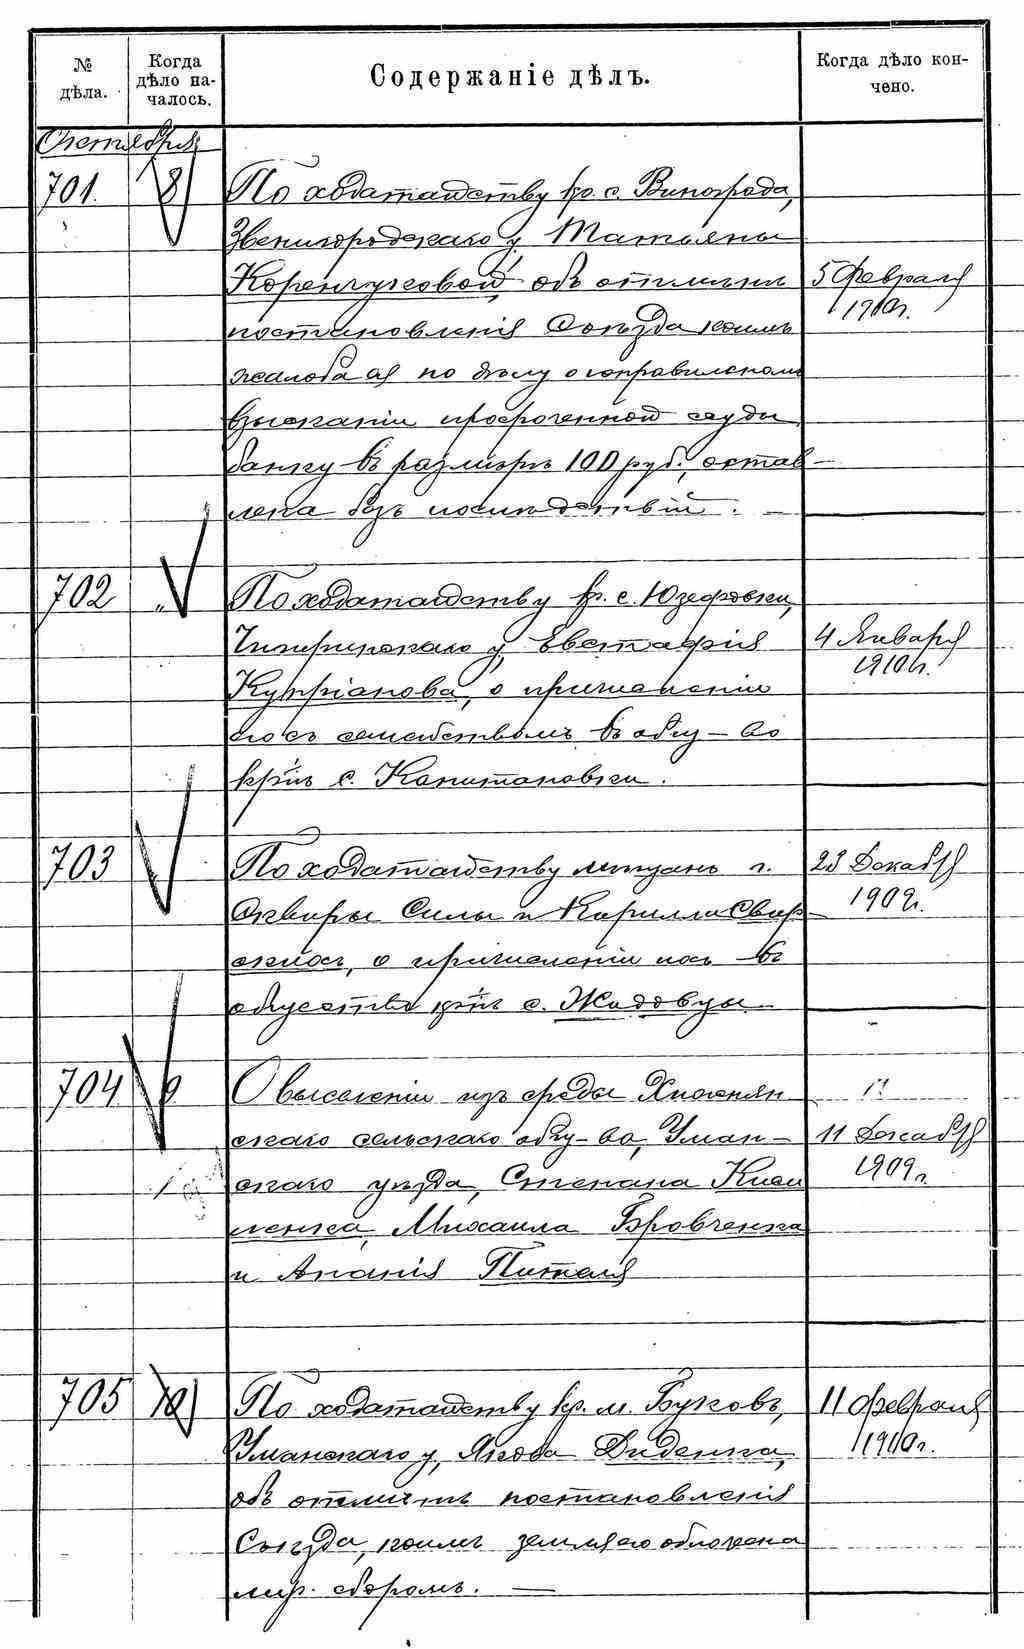 № дѣла.
Когда дѣло на-
чалось.
Содержаніе дѣлъ.
Когда дѣло кон-
чено.
Октября
701. 8
По ходатайству кр. с. Винограда,
Звенигородскаго у. Татьяны
Коренчуковой, объ отмѣнѣ
5 Февраля
1910г.
постановленія Съѣзда коимъ
жалоба ея по дѣлу о неправильномъ
взысканіи просроченной ссуды
банку въ размѣрѣ 100 руб., остав-
лена безъ послѣдствій. —
702 "
По ходатайству кр. с. Юзефовки,
Чигиринскаго у, Евстафія
4 Января
1910г.
Купріанова, о причисленіи
его съ семействомъ въ общ-во
кр-нъ с. Капитановки.
703 "
По ходатайству мѣщанъ г.
23 Декабря
1909г.
Сквиры Силы и Кирилла Свир
скихъ, о причисленіи ихъ въ
общество кр-нъ с. Жидовцы
704 9
О выселеніи изъ среды
скаго сельскаго общ-ва, Уман-
11 Декабря
1909г.
скаго уѣзда, Степана
Михаила Бровченка
и Ананія Пителя
705 10
По ходатайству кр. м. Буковъ,
11 Февраля
1910г.
Уманскаго у, Якова Диденка,
объ отмѣнѣ постановленія
Съѣзда, коимъ земля его обложена
мір. сборомъ. —